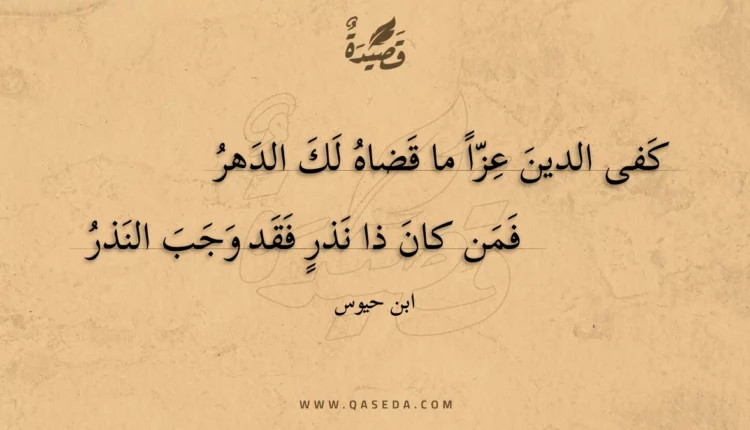 قَصِيدَةٌ
كَفى الدينَ عِزّاً ما قَضاهُ لَكَ الدَهرُ
فَمَن كانَ ذا نَذرٍ فَقَد وَجَبَ النَذرُ
ابن حيوس
WWW.QASEDA.COM